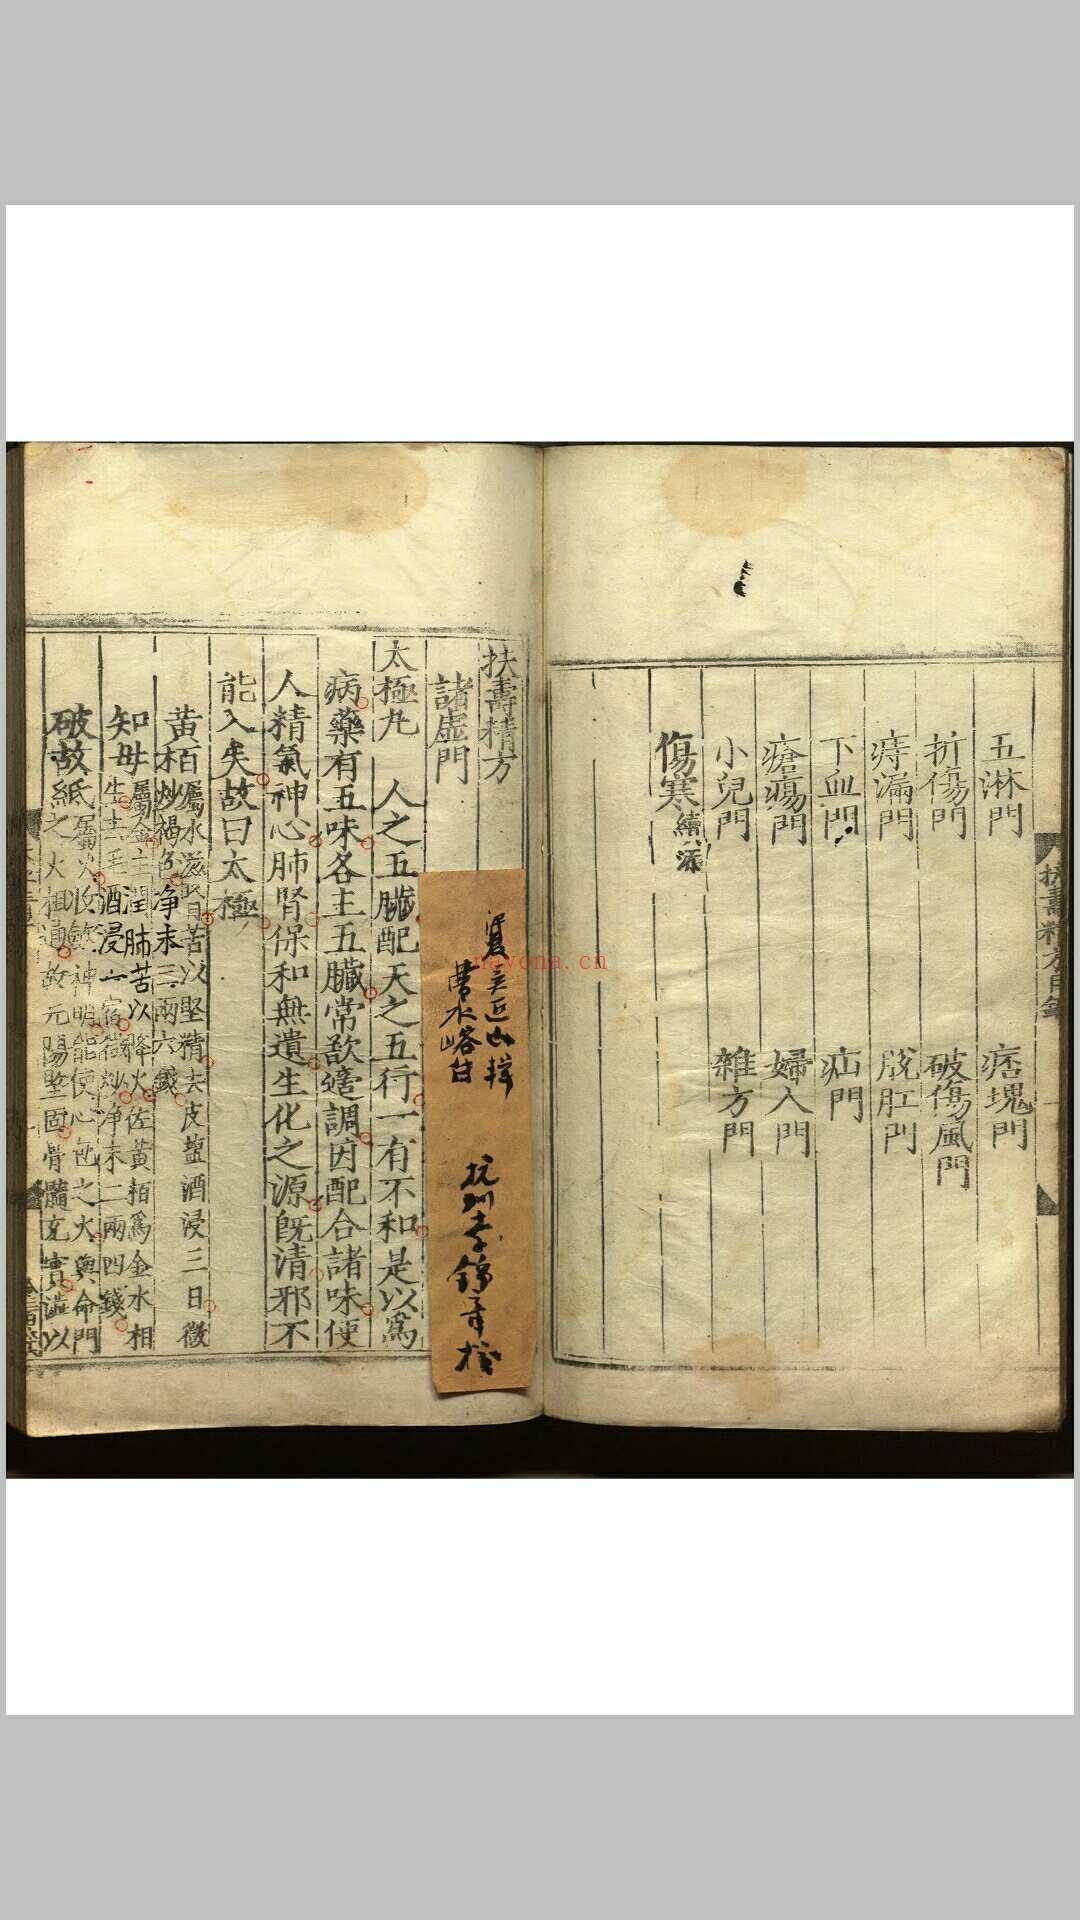 五淋門
痞塊門
折傷門
破傷風門
痔漏門
脫肛門
下血門
疝門
瘡瘍門
婦人門
小兒門
雜方門
傷寒續添
扶壽精方目錄
扶壽精方
諸虛門
太極丸 人之五臟配天之五行一有不和是以爲
病藥有五味各主五臟常欲適調因配合諸味便
人精氣神心肺腎保和無遺生化之源旣清邪不
能入矣故曰太極
黃栢屬水滋腎苦以堅精去皮鹽酒浸三日微
炒褐色净末三兩六錢
知母屬金主潤肺苦以降火佐黃栢爲金水相
生去毛酒浸一宿微炒净末二兩四錢
破故紙屬火收斂神明能使心包之火與命門
之火相通故元陽堅固骨髓充實澁以
吳近山輯
杭州李錦章校
nayona.cn